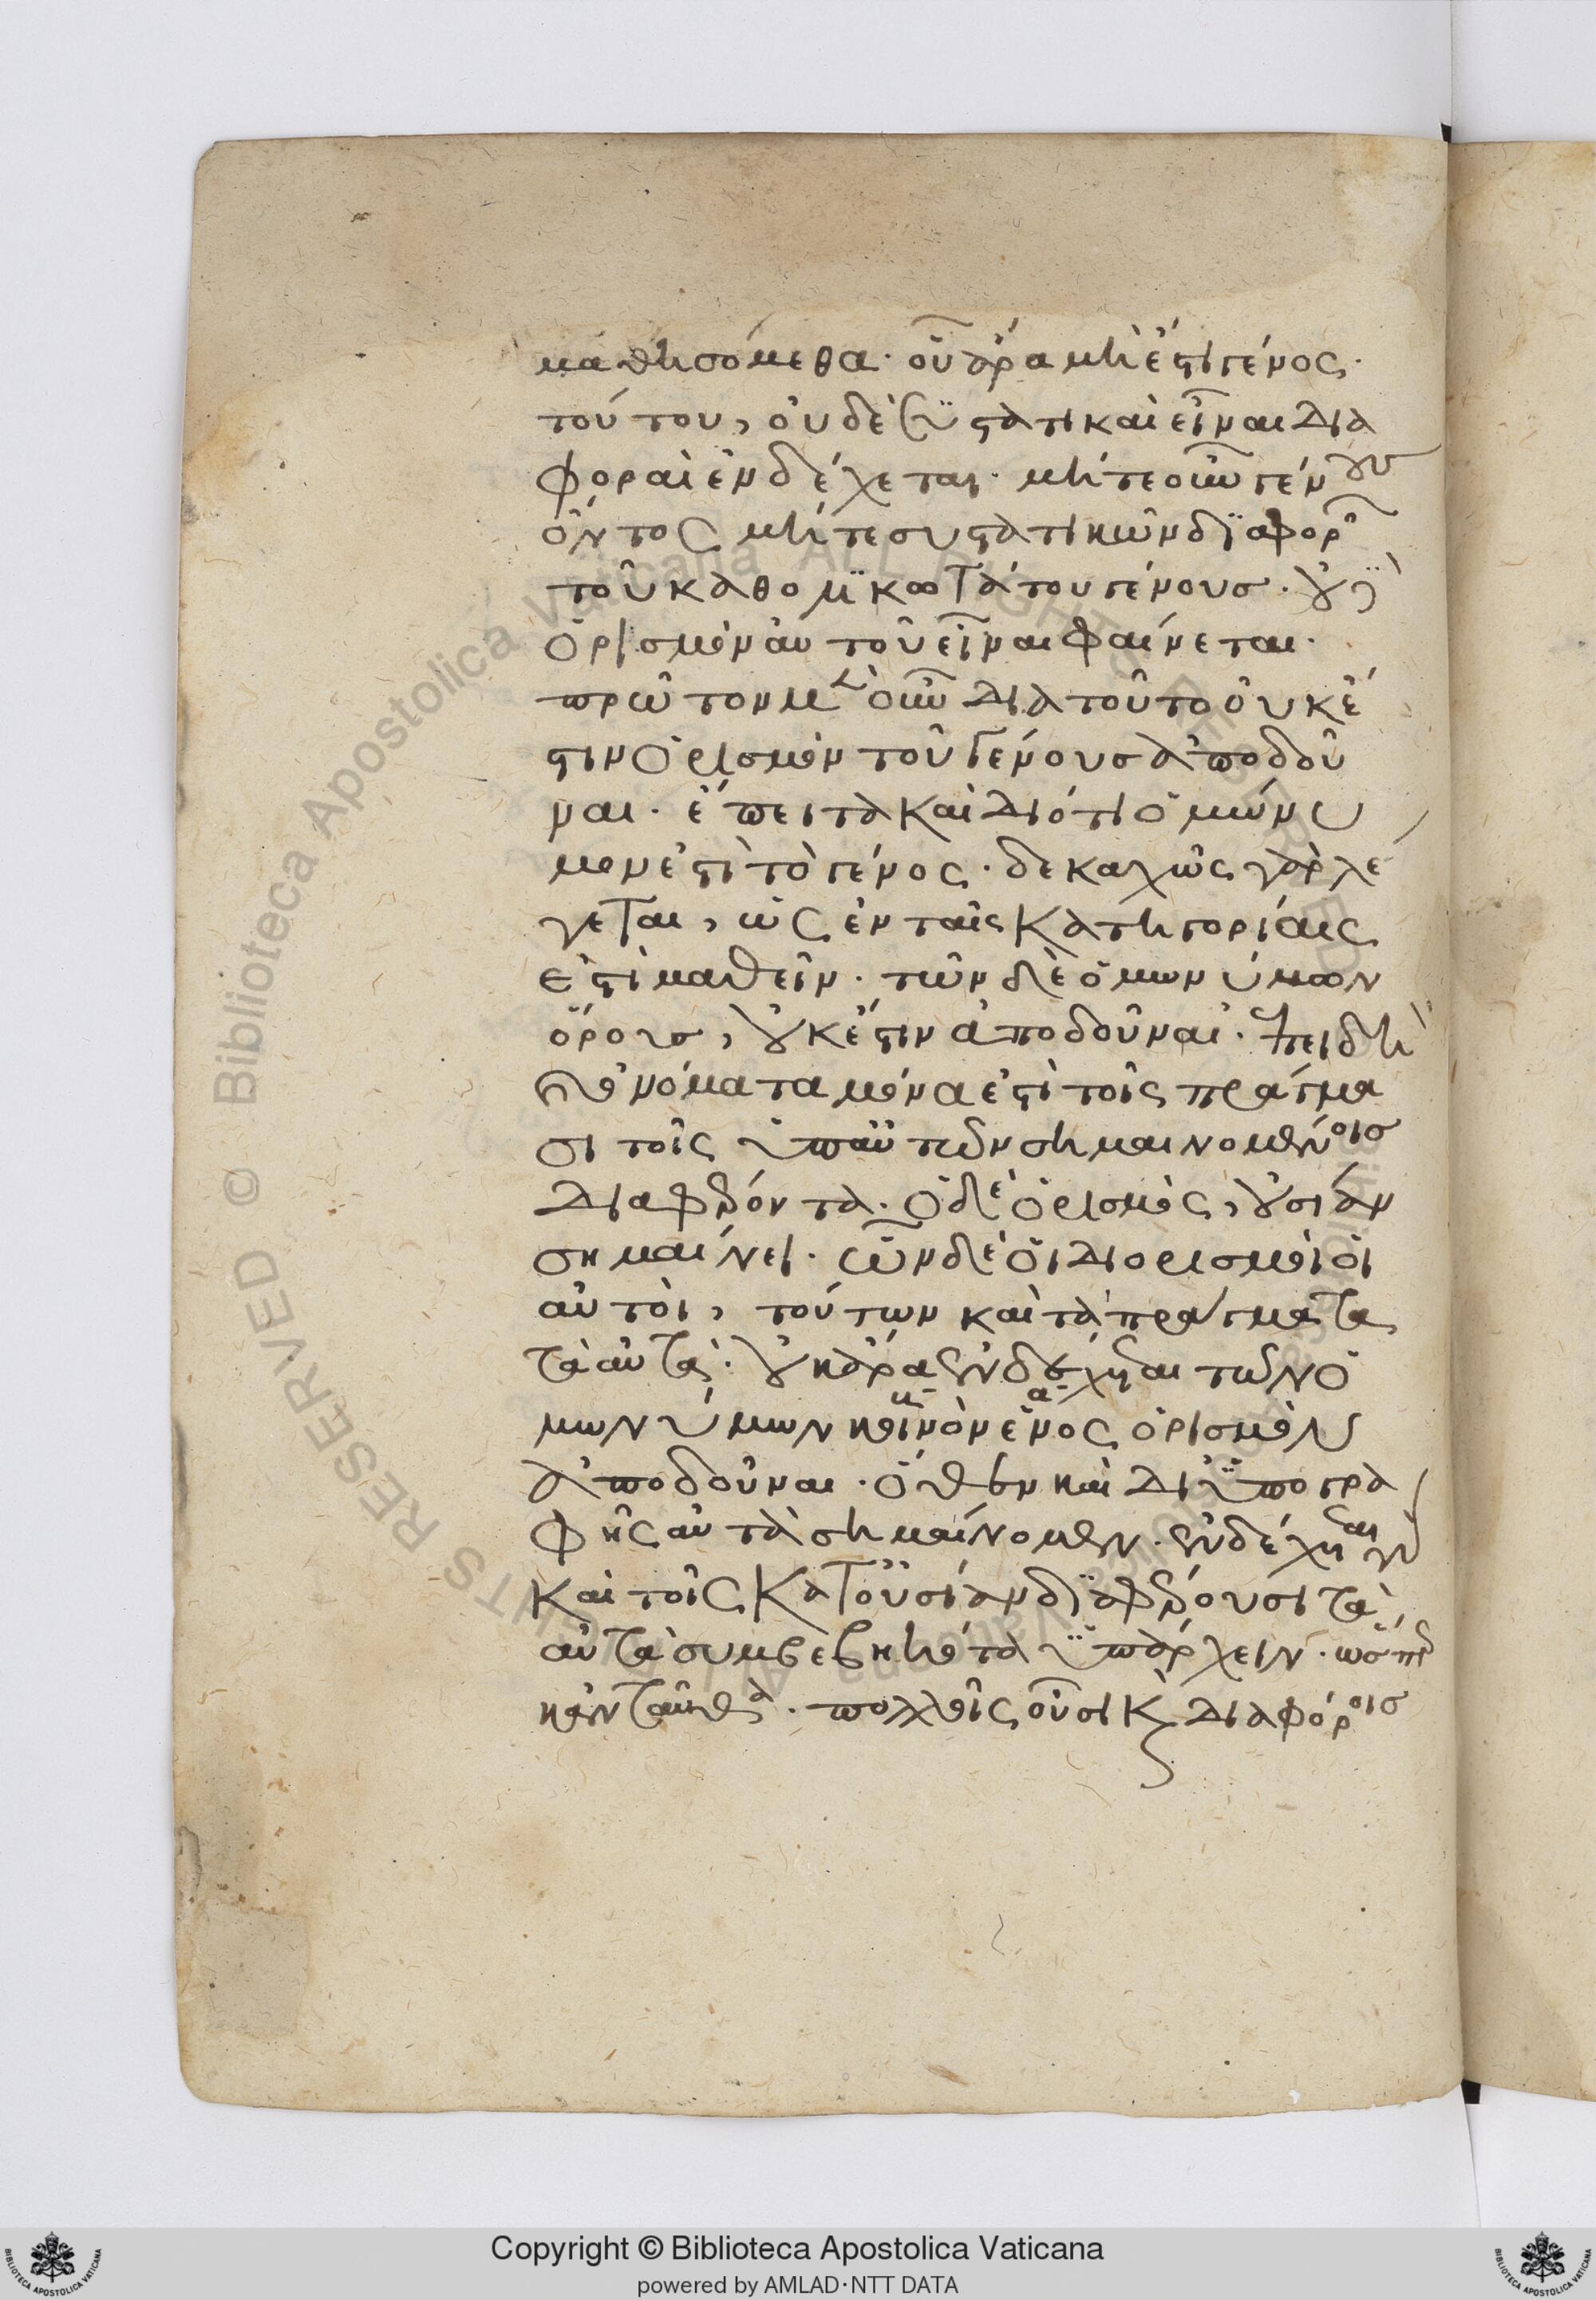 μαθησόμεθα· οὗ ἄρα μὴ ἔστι γένος
τούτου, οὐδὲ συστατικαὶ εἶναι δια
φοραὶ ἐνδέχεται· μήτε οὖν γένους
ὄντος μήτε συστατικῶν διαφορῶν
τοῦ καθολικωτάτου γένους· οὐχ
ὁρισμὸν ἂν τοῦ εἶναι φαίνεται·
πρῶτον μὲν οὖν διατοῦτο οὐκ ἔ
στιν ὁρισμὸν τοῦ γένους ἀποδοῦ
ναι· ἔπειτα καὶ διότι ὁμώνυ
μον ἐστὶ τὸ γένος· δεκαχῶς γὰρ λέ
γεται, ὡς ἐν ταῖς κατηγορίαις
ἐστὶ μαθεῖν· τῶν δὲ ὁμωνύμων
ὅρους, οὐκ ἔστιν ἀποδοῦναι· ἐπειδὴ
ὀνόματα μόνα ἐστὶ τοῖς πράγμα
σι τοῖς ὑπ' αὐτῶν σημαινομένοις
διαφέροντα· ὁ δὲ ὁρισμὸς, οὐσίαν
σημαίνει· ὧν δὲ οἱ διορισμοὶ οἱ
αὐτοὶ, τούτων καὶ τὰ πράγματα
τὰ αὐτά· οὐκ ἄρα ἐνδέχεται τῶν ὁ
μωνύμων κοινὸν ἕνος ὁρισμὸν
ἀποδοῦναι· ὅθεν καὶ δι' ὑπογρα
φῆς αὐτὰ σημαίνομεν· ἐνδέχεται γὰρ
καὶ τοῖς κατ' οὐσίαν διαφέρουσι τὰ
αὐτὰ συμβεβηκότα ὑπάρχειν· ὥσπερ
κἀνταῦθα· πολλοῖς οὖσι καὶ διαφόροις
Copyright © Biblioteca Apostolica Vaticana
powered by AMLAD·NTT DATA